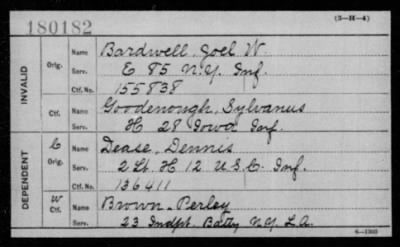 180182
(3—H—4)
INVALID
Orig.
Name Bardwell, Joel W.
Serv. E 85 N.Y. Inf.
Ctf. No. 155838
Ctf.
Name Goodenough, Sylvanus
Serv. H 28 Iowa Inf.
DEPENDENT
C
Orig.
Name Dease, Dennis
Serv. 2 Lt. H 12 U.S.C. Inf.
Ctf. No. 136411
W
Ctf.
Name Brown, Perley
Serv. 23 Indpt. Batty N.Y. L.A.